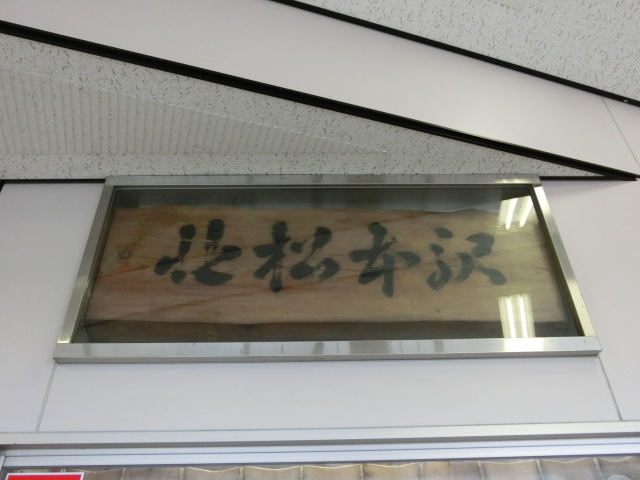 北松本駅